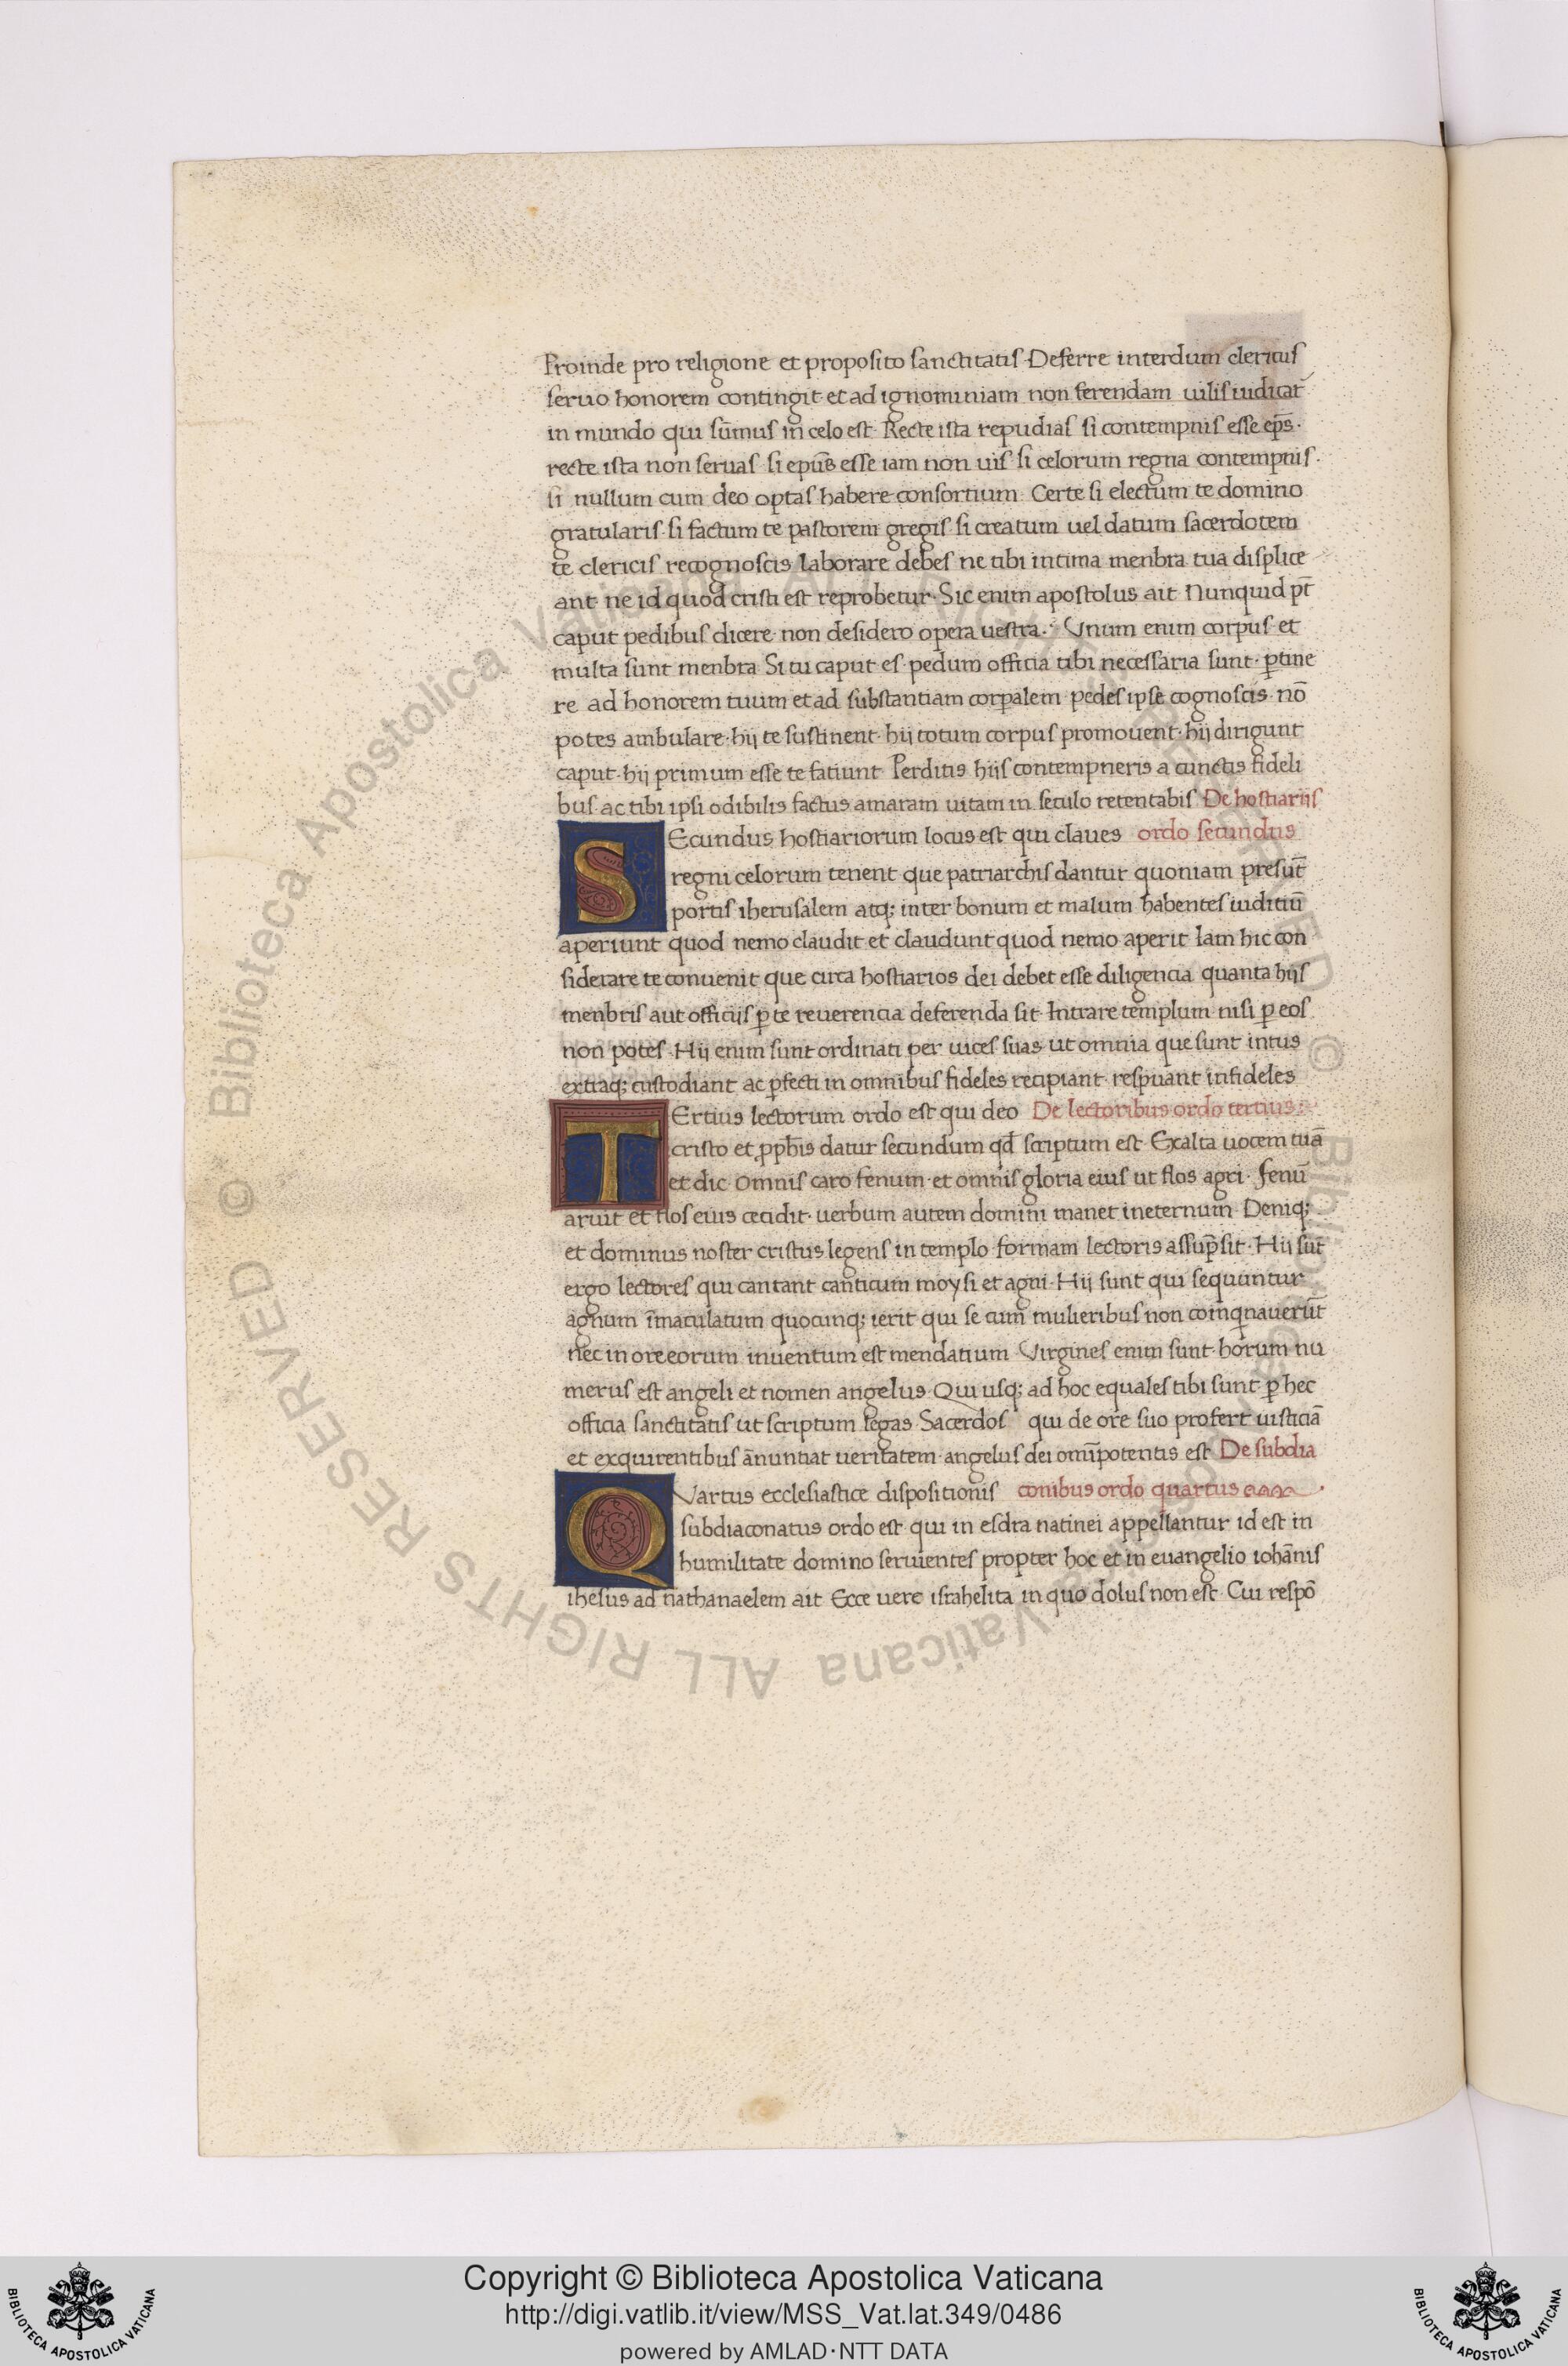 Proinde pro religione et proposito sanctitatis · Deferre interdum clericus
seruo honorem contingit · et ad ignominiam non ferendam uilis iudicat̄
in mundo qui sūmus in celo est · Recte ista repudias si contempnis esse ep̄s ·
recte ista non seruas · si epūs esse iam non uis · si celorum regna contempnis ·
si nullum cum deo optas habere consortium · Certe si electum te domino
gratularis · si factum te pastorem gregis · si creatum uel datum sacerdotem
te clericis recognoscis laborare debes ne tibi intima menbra tua displice
ant · ne id quod cristi est reprobetur · Sic enim apostolus ait Nunquid pt̄
caput pedibus dicere · non desidero opera uestra · Vnum enim corpus et
multa sunt menbra · Si tu caput es · pedum officia tibi necessaria sunt · ꝑtine
re ad honorem tuum et ad substantiam corꝑalem · pedes ipse cognoscis · nō
potes ambulare · hij te sustinent · hij totum corpus promouent · hij dirigunt
caput · hij primum esse te fatiunt Perditis hijs contempneris a cunctis fideli
bus ac tibi ipsi odibilis factus amaram uitam in seculo retentabis De hostiariis
SEcundus hostiariorum locus est qui claues ordo secundus
regni celorum tenent que patriarchis dantur quoniam presūt
portis iherusalem atq; inter bonum et malum habentes iuditiū
aperiunt quod nemo claudit et claudunt quod nemo aperit Iam hic con
siderare te conuenit que circa hostiarios dei debet esse diligencia quanta hijs
menbris aut officijs ꝑ te reuerencia deferenda sit · Intrare templum nisi ꝑ eos
non potes · Hij enim sunt ordinati per uices suas ut omnia que sunt intus
extraq; custodiant ac ꝑfecti in omnibus fideles recipiant · respuant infideles
TErtius lectorum ordo est qui deo De lectoribus ordo tertius
cristo et ꝓph̄is datur secundum qd̄ scriptum est · Exalta uocem tuā
et dic · Omnis caro fenum · et omnis gloria eius ut flos agri · fenū
aruit et flos eius cecidit · uerbum autem domini manet ineternum · Deniq;
et dominus noster cristus legens in templo formam lectoris assup̄sit · Hij sūt
ergo lectores qui cantant canticum moysi et agni · Hij sunt qui sequuntur
agnum īmaculatum quocunq; ierit qui se cum mulieribus non coinqnauerūt
nec in ore eorum inuentum est mendatium Virgines enim sunt · horum nu
merus est angeli et nomen angelus · Qui usq; ad hoc equales tibi sunt · ꝑ hec
officia sanctitatis ut scriptum legas · Sacerdos qui de ore suo profert iusticiā
et exquirentibus ānuntiat ueritatem · angelus dei omīpotentis est De subdia
QVartus ecclesiastice dispositionis conibus ordo quartus
subdiaconatus ordo est · qui in esdra natinei appellantur id est in
humilitate domino seruientes propter hoc et in euangelio iohānis
ihesus ad nathanaelem ait Ecce uere israhelita in quo dolus non est · Cui respō
© Biblioteca Apostolica Vaticana ALL RIGHTS RESERVED
Copyright © Biblioteca Apostolica Vaticana
http://digi.vatlib.it/view/MSS_Vat.lat.349/0486
powered by AMLAD·NTT DATA
BIBLIOTECA APOSTOLICA VATICANA
BIBLIOTECA APOSTOLICA VATICANA